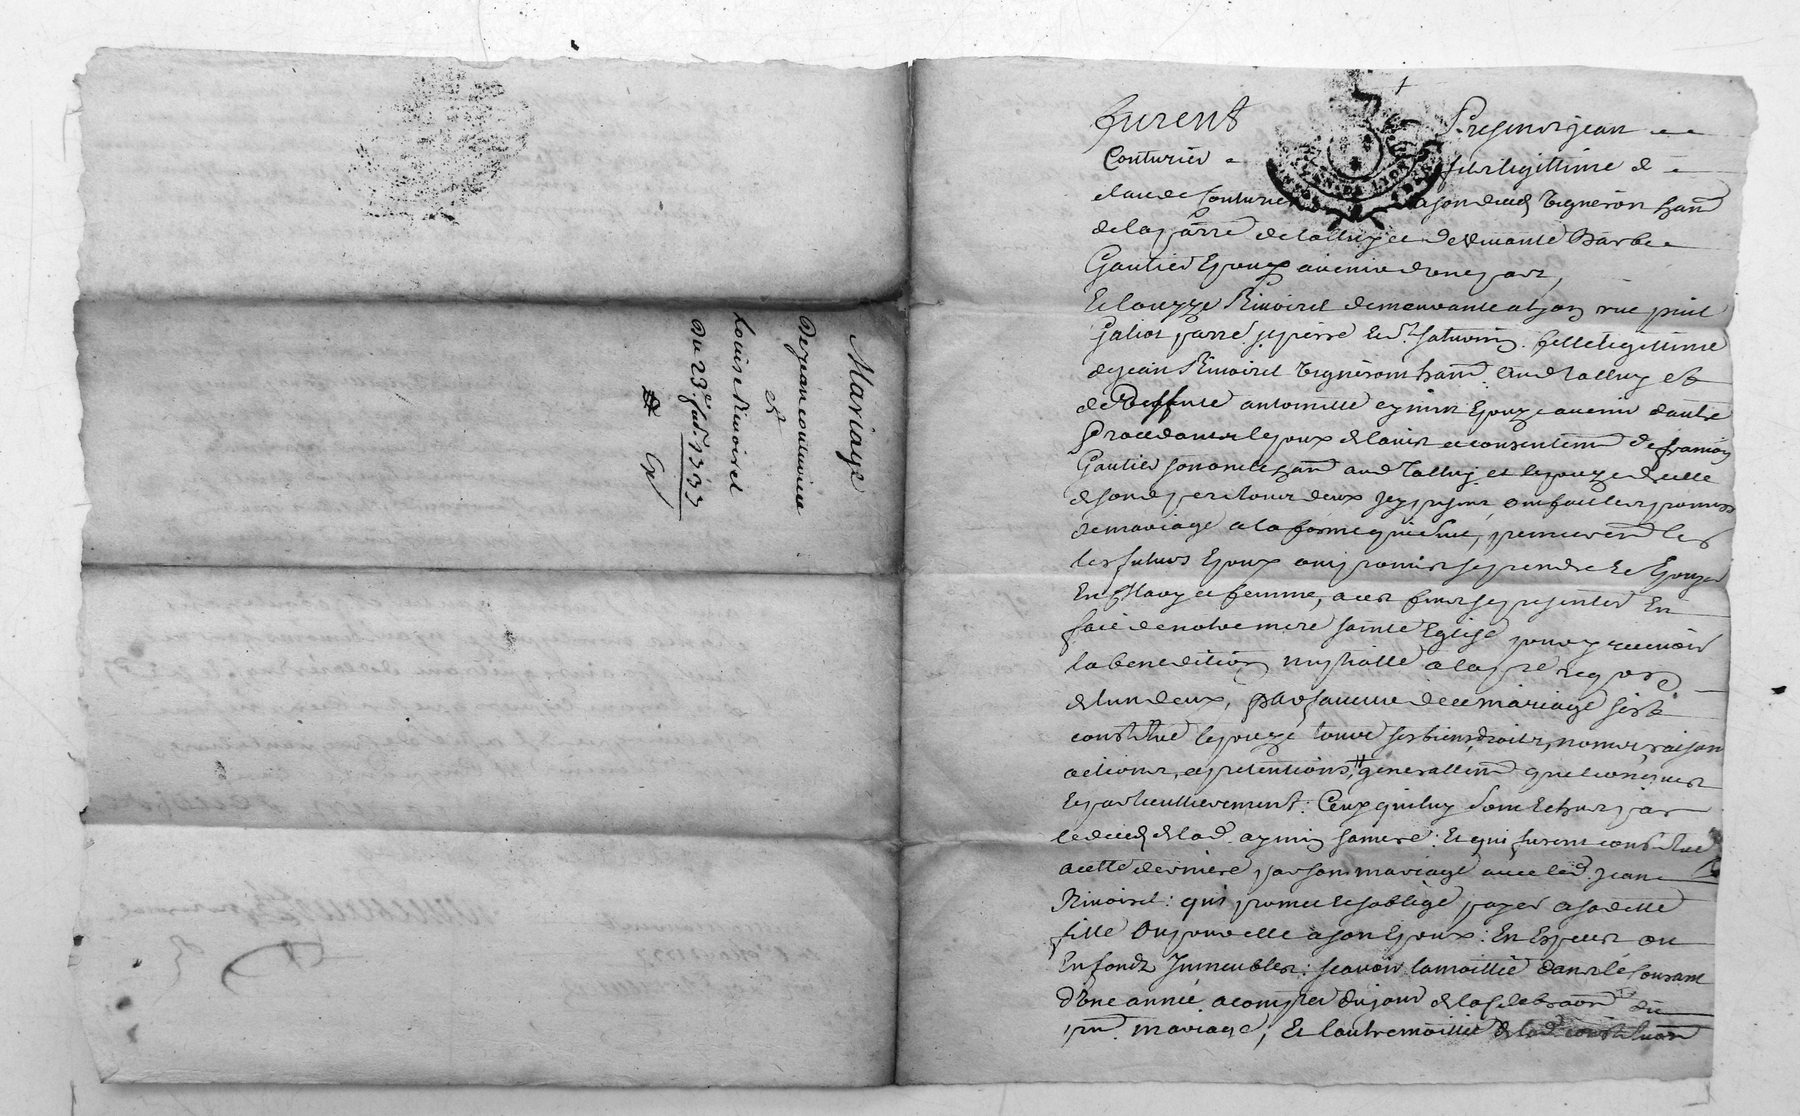 Mariage
de jean couturier
et
Louise Rivoiret
Du 23e
furent Presents jean
Couturier fils legittime de
claude Couturier
de la parre de talluy et de deffuncte Barbe
Gautier Epoux avenir d'une part,
Et louyze Rivoiret demeurante a lyon rue puit
Galiot parre st pierre et st saturnin fille legittime
de jean Rivoiret vigneron hant. aud talluy et
de deffunte antoinette aymin Epouze avenir dautre
Procedants lepoux de lavis et consentemt de francois
Gautier son oncle hant aud Talluy et lepouze de celle
de sond pere tous deux jcy presents, ont fait les promesses
de mariage a la forme qui suit, premierent les
les futurs Epoux ont promis se prendre et Epouzer
En Mary et femme, a ces fins se presenter En
face de notre mere sainte Eglise pour y recevoir
la benediction nuptialle a la pre requise
de l'un deux, par faveur de ce mariage sest
constitué lepouze tous ses biens, droits, noms, raisons
actions, et pretentions, generallemt quelconques
Et particullierement: Ceux qui luy sont Echus par
le deced de lad. aymin sa mere: et qui furent constitué
a cette derniere par son mariage avec led. jean
Rivoiret: qui promet et soblige payer a sadette
fille ou pour elle a son Epoux: En Especes ou
En fondz Jmmeubles: scavoir la moittié dans le Courant
d'une année a compter du jour de la celebraon du
pnt. mariage, et l'autre moittié de lad. constituon